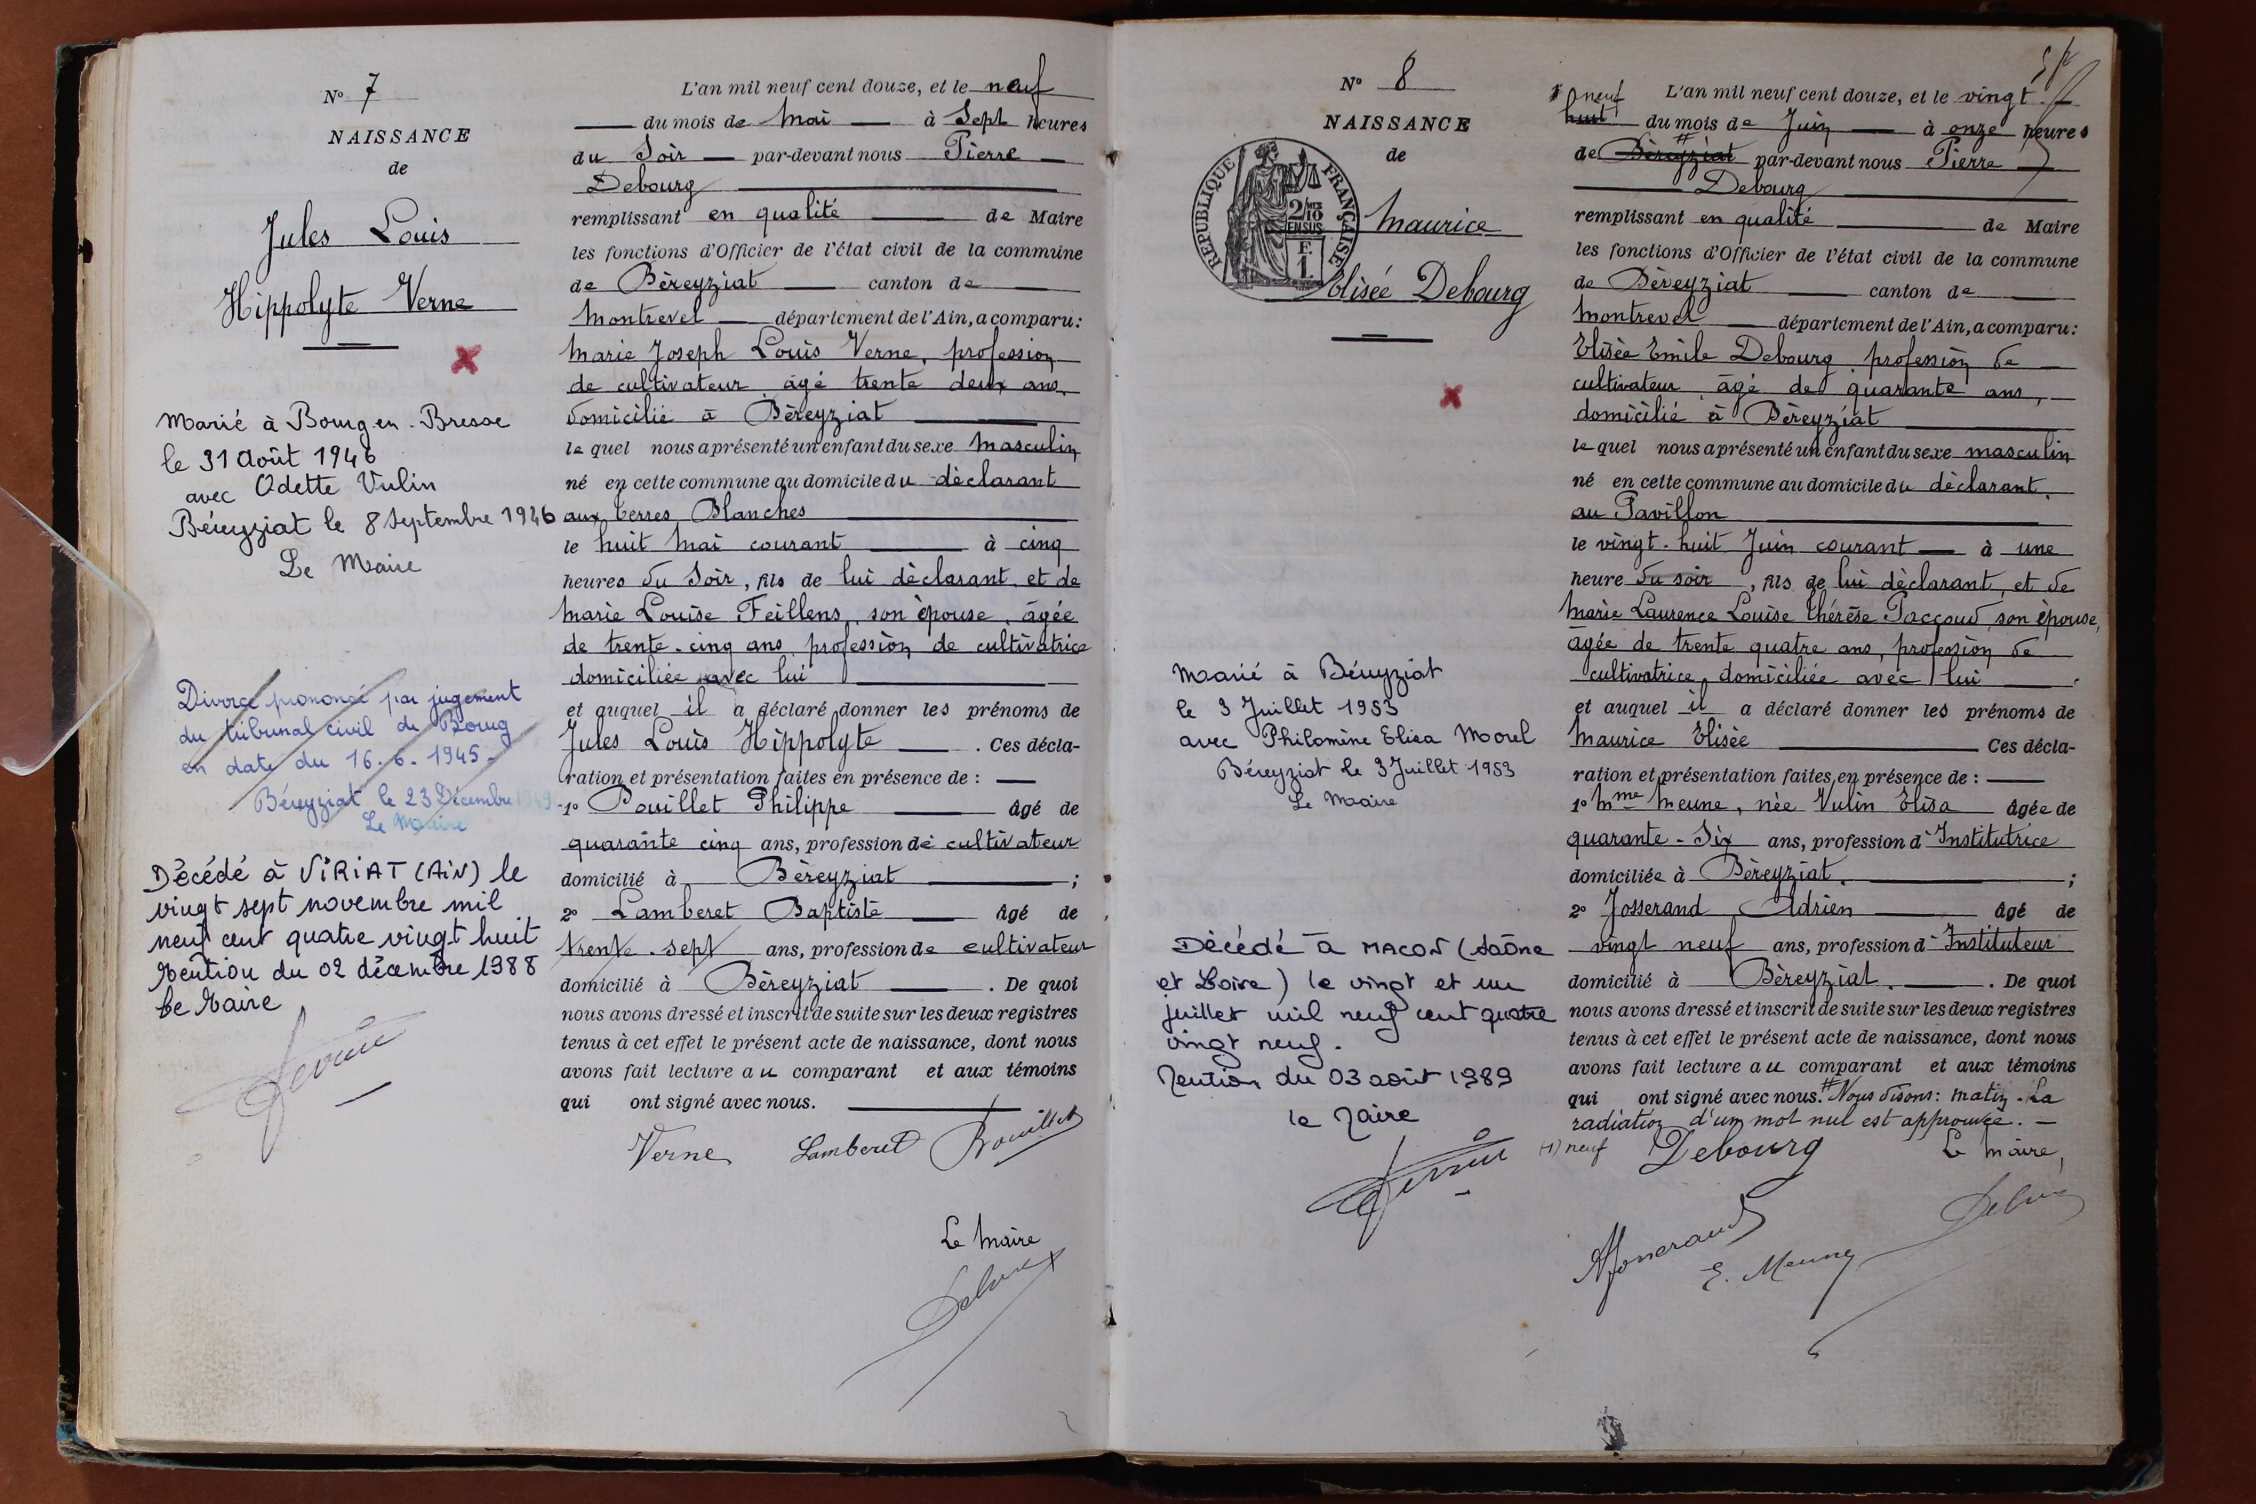 N° 7
NAISSANCE
de
Jules Louis
Hippolyte Verne
Marié à Bourg en-Bresse
le 31 Août 1946
avec Odette Vulin
Béreyziat le 8 Septembre 1946
Le Maire
Divorce prononcé par jugement
du tribunal civil de Bourg
en date du 16.6.1945-
Béreyziat le 23 Décembre
Le Maire
Décédé à VIRIAT (AIN) le
vingt sept novembre mil
neuf cent quatre vingt huit
Mention du 02 décembre 1988
Le Maire
L'an mil neuf cent douze, et le neuf
du mois de Mai à Sept heures
du Soir par-devant nous Pierre
Debourg
remplissant en qualité de Maire
les fonctions d'Officier de l'état civil de la commune
de Bèreyziat canton de
Montrevel département de l'Ain, a comparu:
Marie Joseph Louis Verne, profession
de cultivateur âgé trente deux ans,
domicilié à Bèreyziat
le quel nous a présenté un enfant du sexe masculin
né en cette commune au domicile du dèclarant
aux terres Blanches
le huit Mai courant à cinq
heures du Soir, fils de lui dèclarant et de
Marie Louise Feillens, son èpouse, âgée
de trente-cinq ans, profession de cultivatrice
domiciliée avec lui
et auquel il a déclaré donner les prénoms de
Jules Louis Hippolyte . Ces décla-
ration et présentation faites en présence de :
1° Pouillet Philippe âgé de
quarante cinq ans, profession de cultivateur
domicilié à Bèreyziat ;
2° Lamberet Baptiste âgé de
trente-sept ans, profession de cultivateur
domicilié à Bèreyziat . De quoi
nous avons dressé et inscrit de suite sur les deux registres
tenus à cet effet le présent acte de naissance, dont nous
avons fait lecture au comparant et aux témoins
qui ont signé avec nous.
Verne Lamberet Pouillet
Le Maire
N° 8
NAISSANCE
de
REPUBLIQUE FRANÇAISE
2/10 EN SUS
F.
1.
Maurice
Elisée Debourg
Marié à Béreyziat
le 3 Juillet 1953
avec Philomène Elisa Morel
Béreyziat le 3 Juillet 1953
Le Maire
Décédé à MACON (Saône
et Loire) le vingt et un
juillet mil neuf cent quatre
vingt neuf.
Mention du 03 août 1989
le Maire
L'an mil neuf cent douze, et le vingt
neuf
huit du mois de Juin à onze heures
de # Bèreyziat par-devant nous Pierre
Debourg
remplissant en qualité de Maire
les fonctions d'Officier de l'état civil de la commune
de Bèreyziat canton de
Montrevel département de l'Ain, a comparu:
Elisèe Emile Debourg profession de
cultivateur, âgé de quarante ans,
domicilié à Bèreyziat
le quel nous a présenté un enfant du sexe masculin
né en cette commune au domicile du dèclarant,
au Pavillon
le vingt-huit Juin courant à une
heure du soir, fils de lui dèclarant, et de
Marie Laurence Louise thérèse Paccoud son èpouse,
âgée de trente quatre ans, profession de
cultivatrice, domiciliée avec lui
et auquel il a déclaré donner les prénoms de
Maurice Elisèe Ces décla-
ration et présentation faites en présence de :
1° Mme Meune, nèe Vulin Elisa âgée de
quarante-Six ans, profession d'Institutrice
domiciliée à Bèreyziat. ;
2° Josserand Adrien âgé de
vingt neuf ans, profession d'Instituteur
domicilié à Bèreyziat. . De quoi
nous avons dressé et inscrit de suite sur les deux registres
tenus à cet effet le présent acte de naissance, dont nous
avons fait lecture au comparant et aux témoins
qui ont signé avec nous. # Nous disons: matin. La
radiation d'un mot nul est approuvée.
(1) neuf Debourg Le Maire,
AJosserand
E. Meune